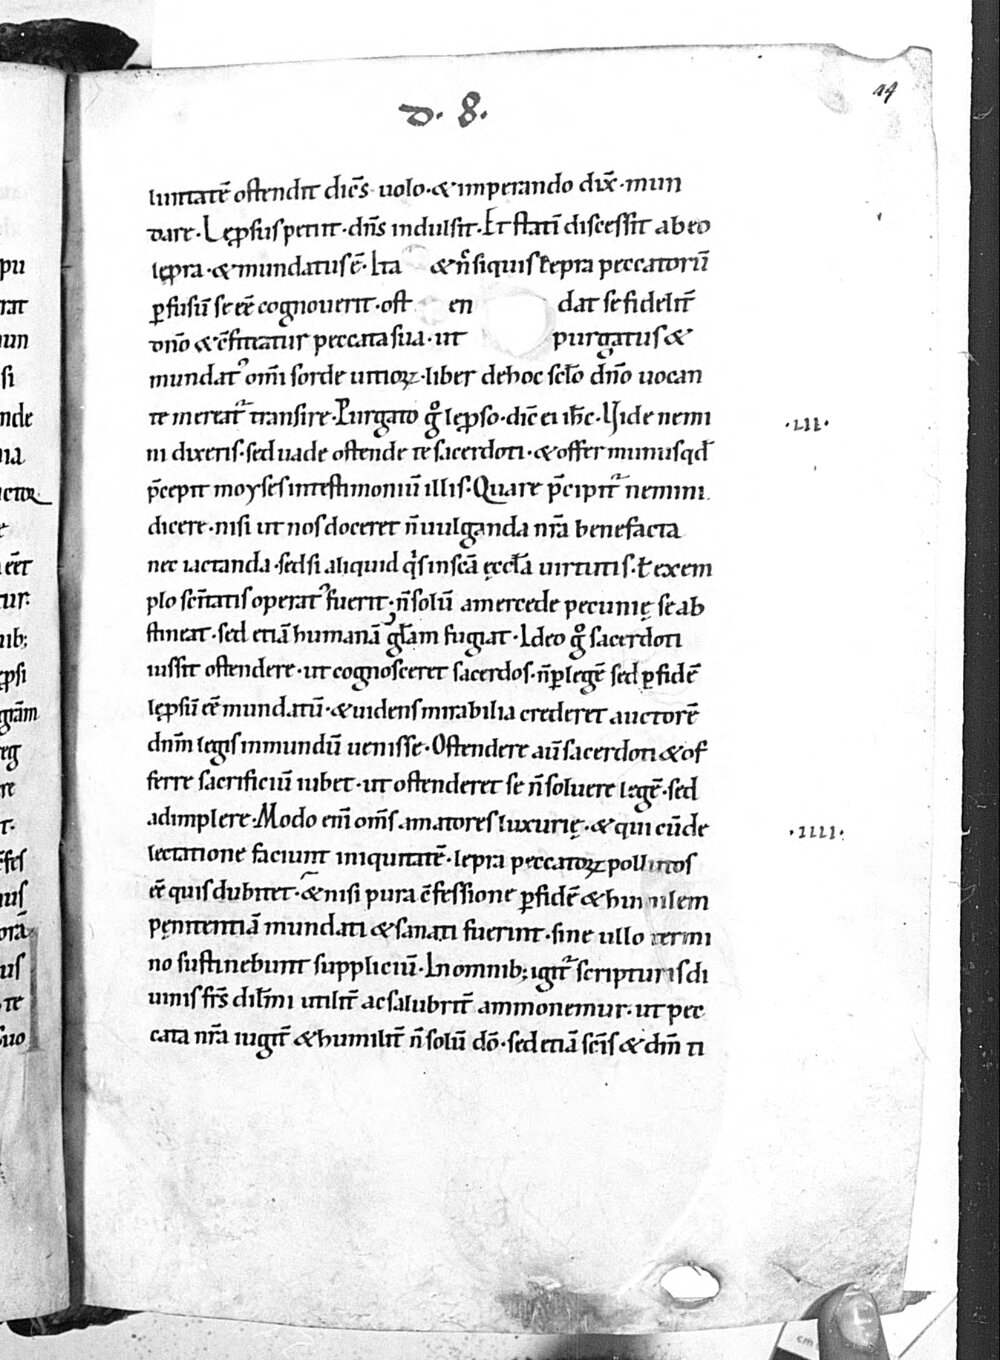 D. 8.
14
luntatē ostendit dicēs· uolo·&imperando dix̄·mun
dare·Lep̱sus petiit·dn̄s indulsit·Et statī discessit ab eo
lepra·&mundatus ē·Ita &n̄ siquis lepra peccatorū
ꝑfusū se eē cognouerit·ost en dat se fidelit̄
dn̄o &c̄fiteatur peccata sua·ut purgatus &
mundatˀ om̄i sorde uitioꝝ·liber de hoc sc̄lo dn̄o uocan
te mereat᷑ transire·Purgato g̊ lep̱so·dic̄ ei ih̄c·Vide nemi
·III·
ni dixeris·sed uade ostende te sacerdoti·&offer munus qd̄
p̄cepit moyses intestimoniū illis·Quare p̄cipit᷑ nemini
dicere·nisi ut nos doceret n̄ uulganda nr̄a benefacta
nec iactanda·sed si aliquid q̇s in sc̄a ęccl̄a uirtutis·ł exem
plo sc̄itatis operatˀ fuerit·n̄ solū a mercede pecunię se ab
stineat·sed etiā humanā gl̄am fugiat·Ideo g̊ sacerdoti
iussit ostendere·ut cognosceret sacerdos·n̄ ꝑ legē sed ꝑ fidē
lep̱sū eē mundatū·&uidens mirabilia crederet auctorē
dnm̄ legis inmundū uenisse·Ostendere aū sacerdoti &of
ferre sacrificiū iubet·ut ostenderet se n̄ soluere legē·sed
adimplere·Modo eni̅ om̄s amatores luxurię·&qui cū de
·IIII·
lectatione faciunt iniquitatē·lepra peccatoꝝ pollutos
eē quis dubitet·&nisi pura c̄fessione ꝑ fidē &humilem
pęnitentiā mundati &sanati fuerint·sine ullo termi
no sustinebunt suppliciū·In omnib; igit᷑ scripturis di
uinis fr̄s dil̄mi utilit̄ ac salubrit̄ ammonemur·ut pec
cata nr̄a iugit̄ &humilit̄ n̄ solū dō·sed etiā sc̄is &dm̄ ti